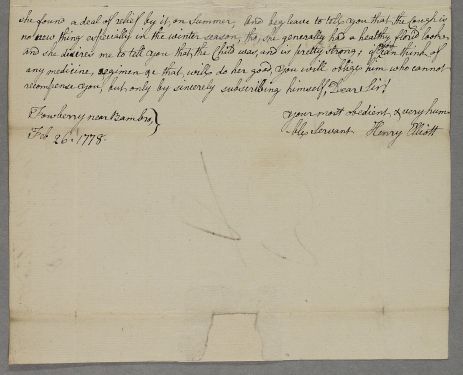 she found a deal of relief by it, on summer, And beg leave to tell you that the Cough is
no new thing especially in the winter season, tho' she generally had a healthy florid look,
and she desires me to tell you that the Child was, and is pretty strong; if you can think of
any medicine, regimen &c that will do her good, you will oblige him who cannot
recompense you, but only by sincerely subscribing himself, Dear Sir!
your most obedient & very hum
ble Servant Henry Elliott
Fowberry near Bambro,
Feb 26. 1778.